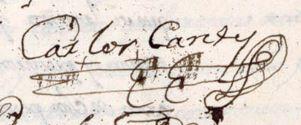 Carlos Caney